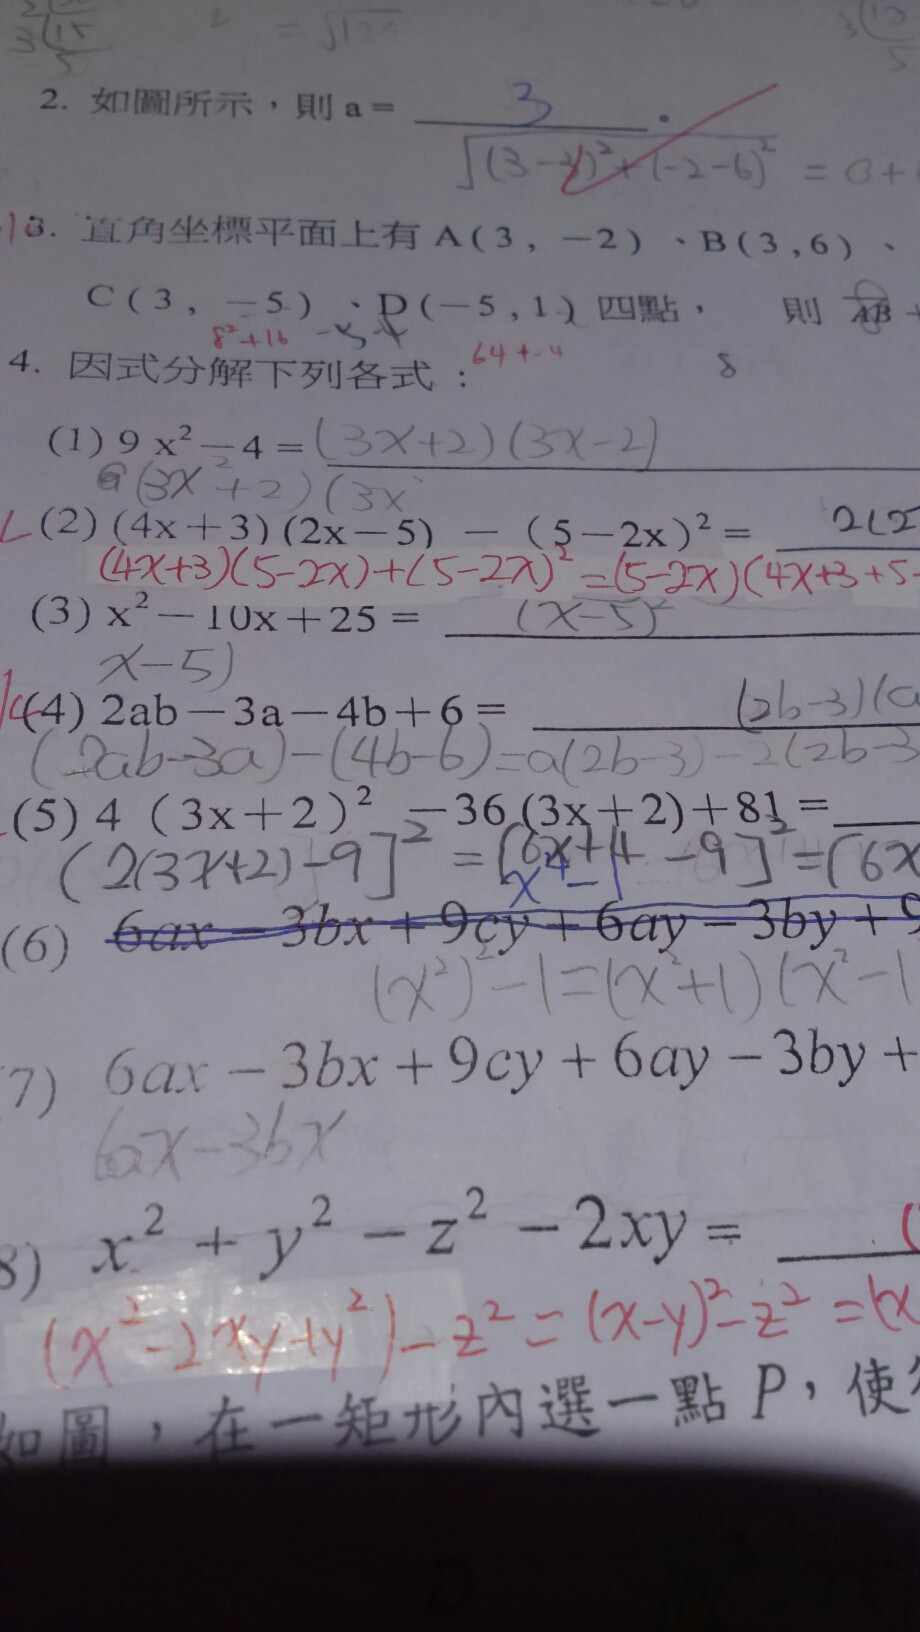 3 15
5
= √100
2. 如圖所示，則 a = 3 .
√(3-)²+(-2-6)² = 0+
3. 直角坐標平面上有 A(3, -2)、B(3,6)、
C(3, -5)、D(-5,1) 四點, 則 AB +
8²+16
64+
8
4. 因式分解下列各式：
(1) 9 x² - 4 = (3x+2)(3x-2)
(3x²+2)(3x
(2) (4x+3)(2x-5) - (5-2x)² = 2(2
(4x+3)(5-2x)+(5-2x)² = (5-2x)(4x+3+5-
(3) x² - 10x + 25 = (x-5)²
x-5)
(4) 2ab - 3a - 4b + 6 = (2b-3)(a
(2ab-3a)-(4b-6)=a(2b-3)-2(2b-3
(5) 4 (3x+2)² - 36 (3x+2) + 81 =
(2(3x+2)-9]² = [6x+4-9]² = [6x
x⁴-1
(6) 6ax - 3bx + 9cy + 6ay - 3by + 9
(x²)²-1=(x²+1)(x²-1
7) 6ax - 3bx + 9cy + 6ay - 3by +
6ax-3bx
8) x² + y² - z² - 2xy = (
(x²-2xy+y²)-z² = (x-y)²-z² = (x
如圖，在一矩形內選一點 P，使